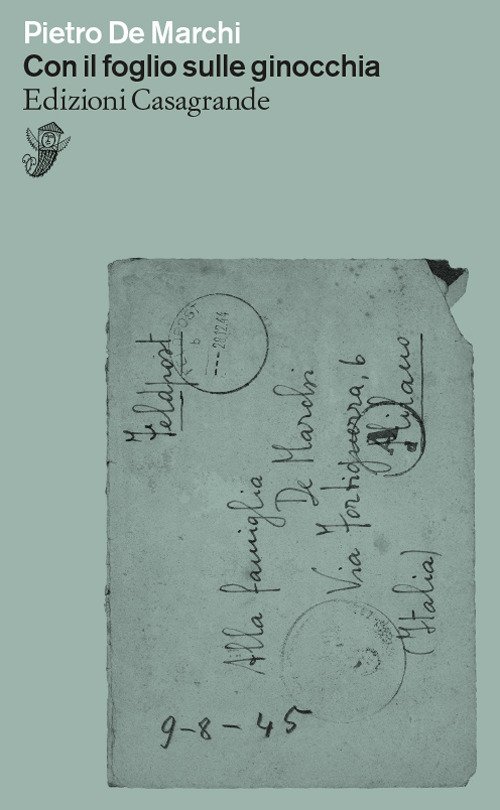 Pietro De Marchi
Con il foglio sulle ginocchia
Edizioni Casagrande
Feldpost
28.12.44
Alla famiglia
De Marchi
Via Fortiguerra, 6
Milano
(Italia)
9-8-45